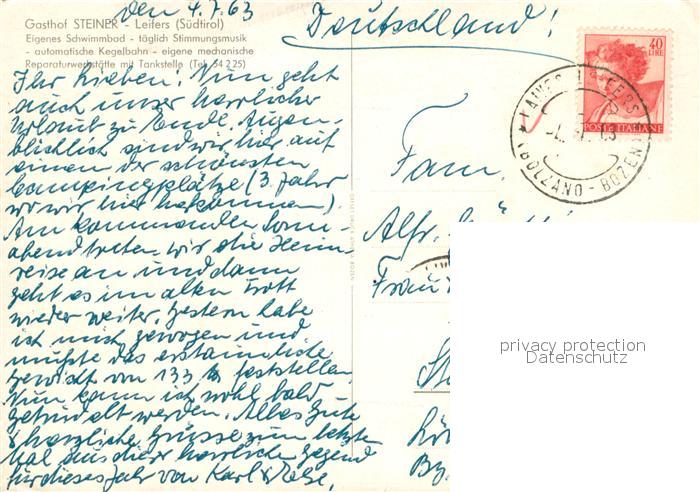 den 4.7.63
Gasthof STEINER - Leifers (Südtirol)
Eigenes Schwimmbad - täglich Stimmungsmusik
- automatische Kegelbahn - eigene mechanische
Reparaturwerkstätte mit Tankstelle (Tel. 54225)
Ihr Lieben! Nun geht
auch unser herrlicher
Urlaub zu Ende. Augen-
blicklich sind wir hier auf
einem der schönsten
Campingplätze (3. Jahr
wo wir hier herkommen).
Am kommenden Sonn-
abend treten wir die Heim-
reise an und dann
geht es im alten Trott
wieder weiter. Gestern habe
ich mich gewogen und
mußte das erstaunliche
Gewicht von 133 feststellen.
Nun kann ich wohl bald
werden. Alles Gute
& herzliche Grüsse zum letzten
Mal aus dieser herrlichen Gegend
für dieses Jahr von Karl &
Deutschland!
40
LIRE
POSTE ITALIANE
LAIVES LEIFERS
(BOLZANO - BOZEN)
Fam.
Alfr.
Frau
privacy protection
Datenschutz